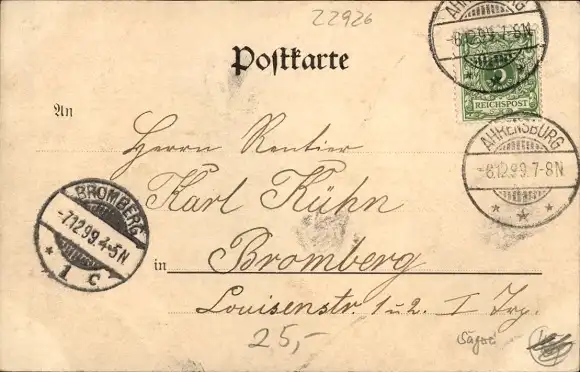 22926
AHRENSBURG
-6.12.99.7-8N
5
REICHSPOST
Postkarte
An
AHRENSBURG
-6.12.99.7-8N
Herrn Rentier
Karl Kühn
BROMBERG
-7.12.99.4-5N.
* 1 c
in Bromberg
Louisenstr. 1 u. 2. I Trp.
25,-